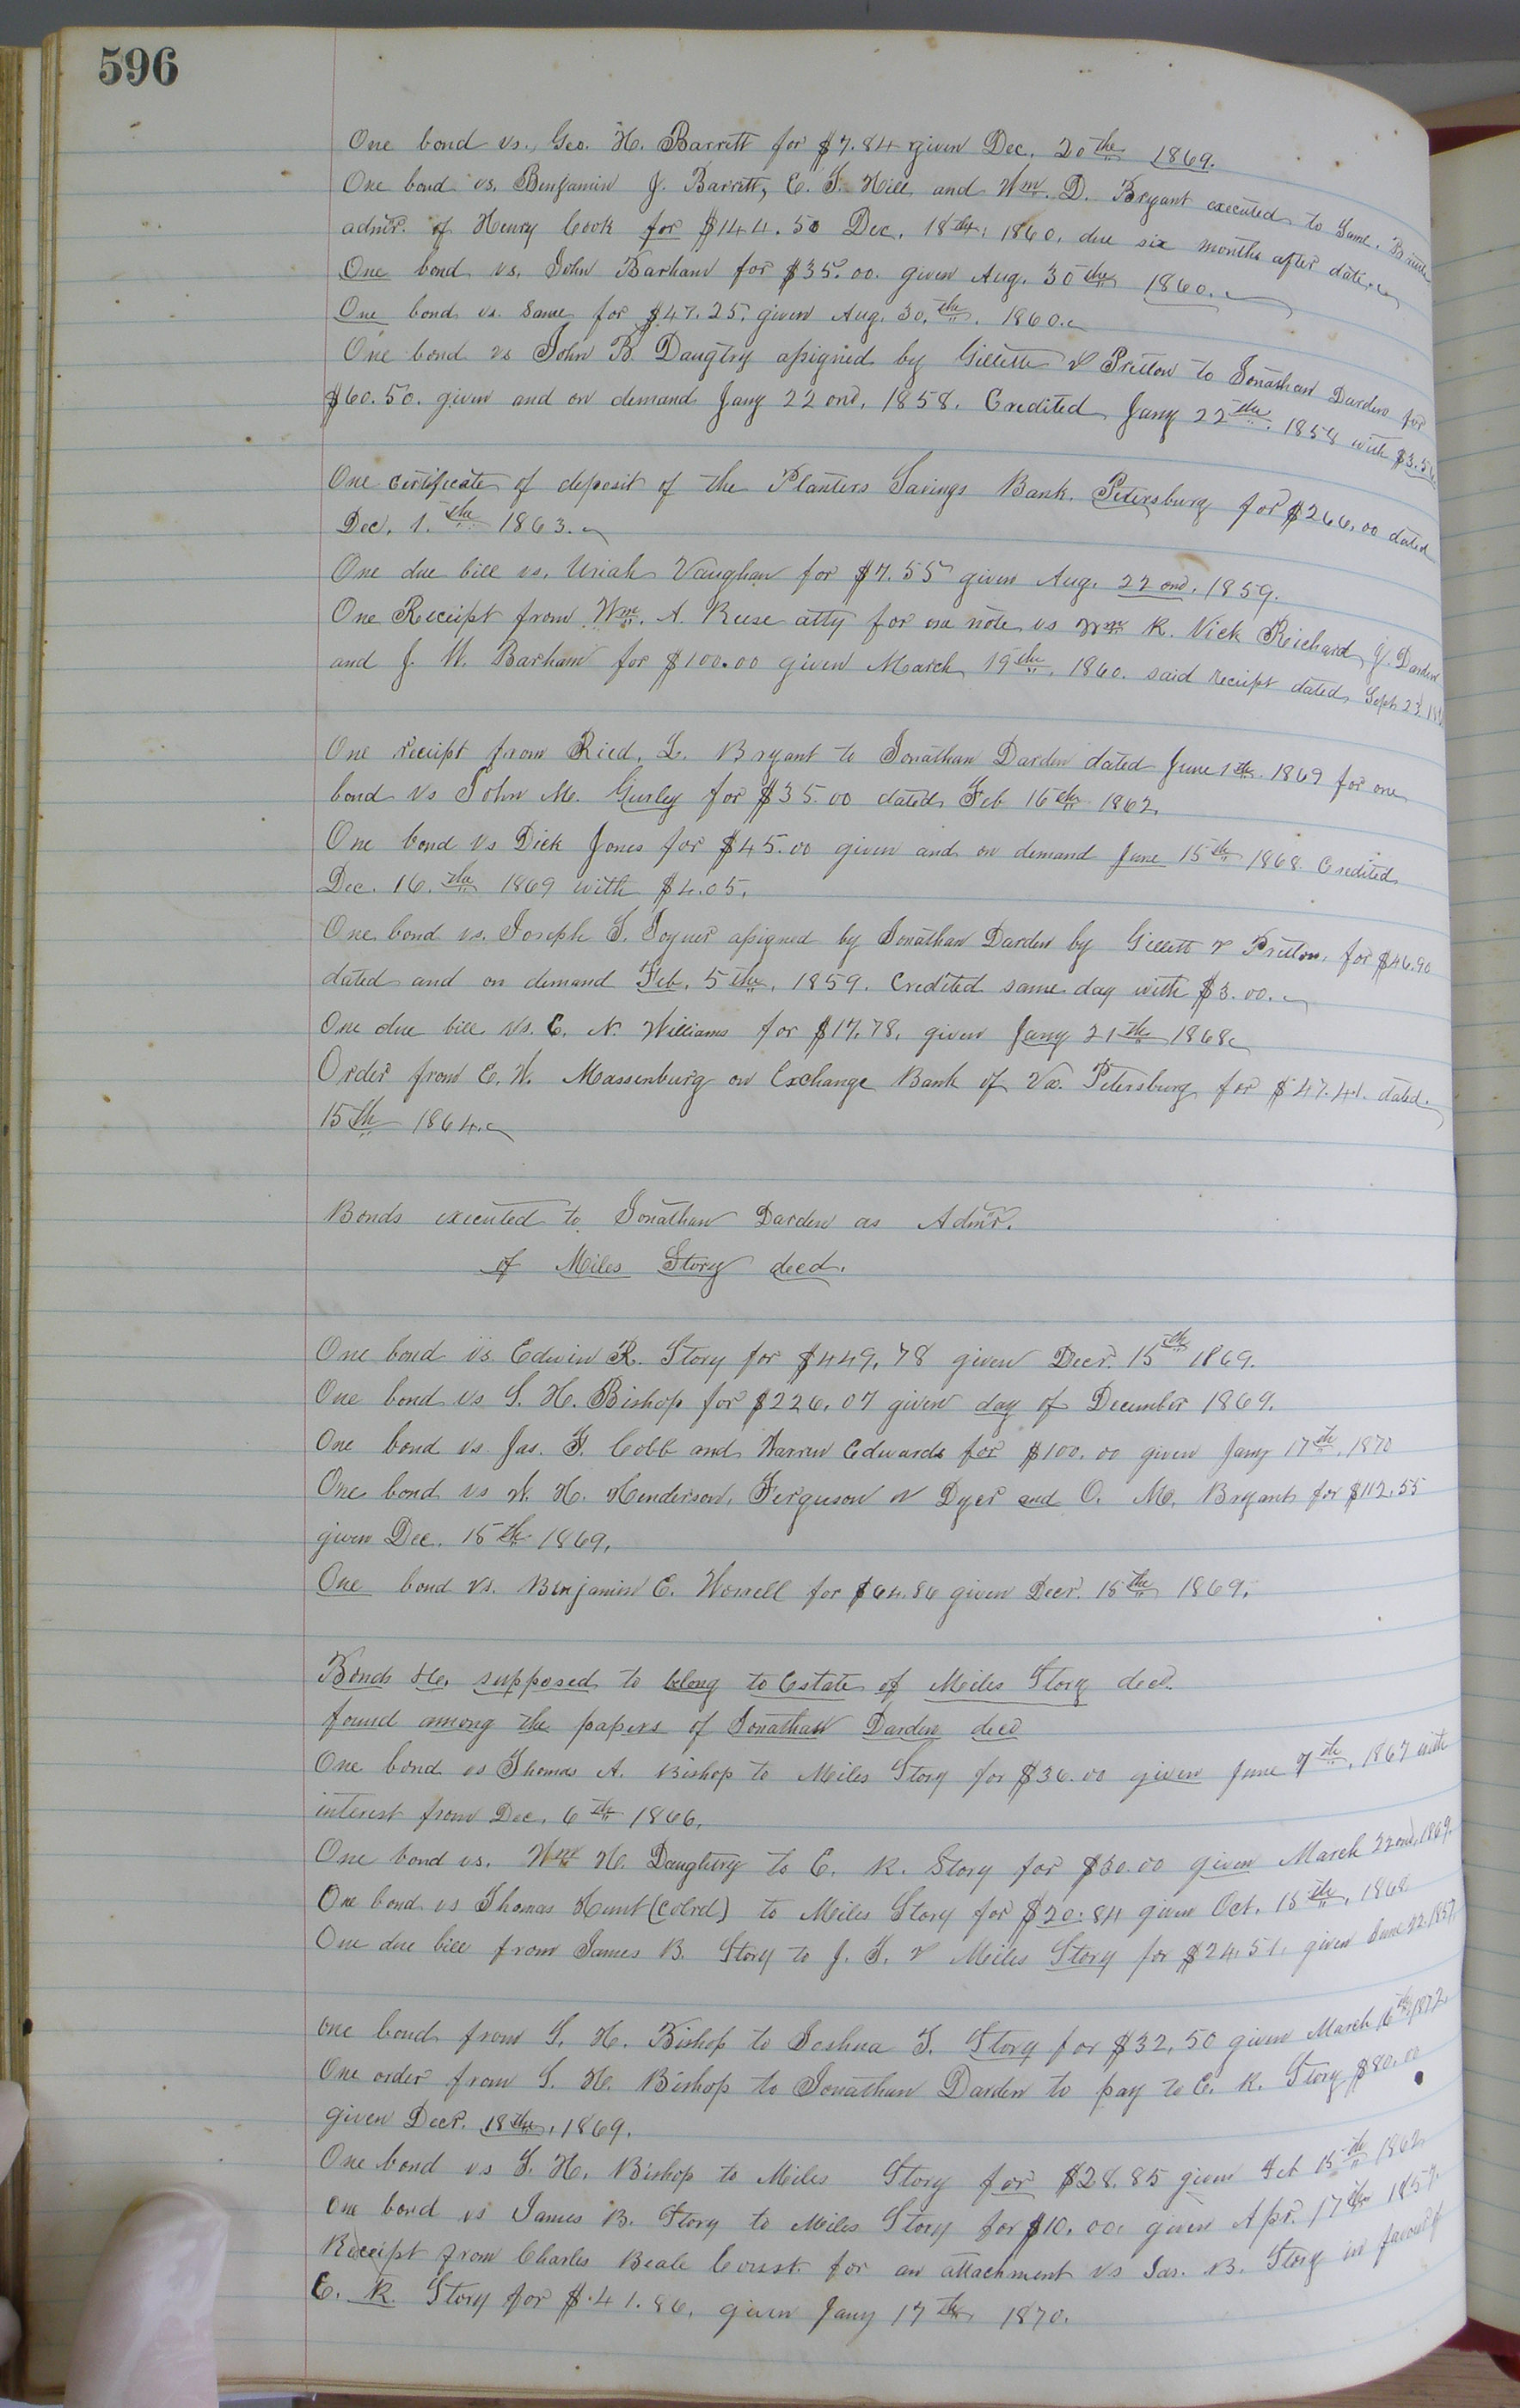 596
One bond vs. Geo. H. Barrett for $7.84 given Dec. 20th 1869.
One bond vs. Benjamin J. Barrett, E. T. Hill and Wm. D. Bryant executed to Saml. B.
admr. of Henry Cook for $144.50 Dec. 18th, 1860, due six months after date.
One bond vs. John Barham for $35.00. given Aug. 30th 1860.
One bond vs. Same for $47.25, given Aug. 30th. 1860.
One bond vs John B. Daugtry assigned by Gillette & Pretlow to Jonathan Darden for
$60.50. given and on demand Jany 22ond, 1858. Credited Jany 22th. 1858 with $3.50
One certificate of deposit of the Planters Savings Bank. Petersburg for $266.00 dated
Dec. 1.th 1863.
One due bill vs. Uriah Vaughan for $7.55 given Aug. 22ond. 1859.
One Receipt from Wm. A. Reese atty for one note vs Wm R. Vick Richard J. Darden
and J. W. Barham for $100.00 given March 19th. 1860. said receipt dated Sept 23
One receipt from Ried. L. Bryant to Jonathan Darden dated June 1th. 1869 for one
bond vs John M. Gurley for $35.00 dated Feb 16th 1862.
One bond vs Dick Jones for $45.00 given and on demand June 15th 1868 Credited
Dec. 16.th 1869 with $4.05.
One bond vs. Joseph T. Joyner assigned by Jonathan Darden by Gillett & Pretlow, for $46.90
dated and on demand Feb. 5th. 1859. Credited same day with $3.00.
One due bill vs. E. N. Williams for $17.78, given Jany 21th 1868
Order from E. W. Massenburg on Exchange Bank of Va. Petersburg for $47.41. dated.
15th 1864.
Bonds executed to Jonathan Darden as Admr.
of Miles Story decd.
One bond vs Edwin R. Story for $449,78 given Decr. 15th 1869.
One bond vs S. H. Bishop for $226,07 given day of December 1869.
One bond vs Jas. F. Cobb and Warren Edwards for $100.00 given Jany 17th. 1870
One bond vs W. H. Henderson, Ferguson & Dyer and O. M. Bryant for $112.55
given Dec. 15th 1869,
One bond vs. Benjamin E. Worrell for $64.86 given Decr. 15th 1869.
Bonds &c. supposed to belong to Estate of Miles Story decd.
found among the papers of Jonathan Darden decd
One bond vs Thomas A. Bishop to Miles Story for $36.00 given June 7th, 1867 with
interest from Dec. 6th 1866,
One bond vs. Wm H. Daughtry to E. R. Story for $30.00 given March 22ond, 1869.
One bond vs Thomas Hunt (colrd) to Miles Story for $20.84 given Oct. 15th, 1868
One due bill from James B. Story to J. T. & Miles Story for $24,51, given June 22. 1857,
one bond from S. H. Bishop to Joshua T. Story for $32,50 given March 16th 1872
One order from S. H. Bishop to Jonathan Darden to pay to E. R. Story $80.00
given Decr. 18th, 1869.
One bond vs S. H. Bishop to Miles Story for $28.85 given Feb 15th 1862
One bond vs James B. Story to Miles Story for $10.00. given Apr. 17th 1857.
Receipt from Charles Beale Const. for an attachment vs Jas. B. Story in favour of
E. R. Story for $.41.86, given Jany 17th 1870.